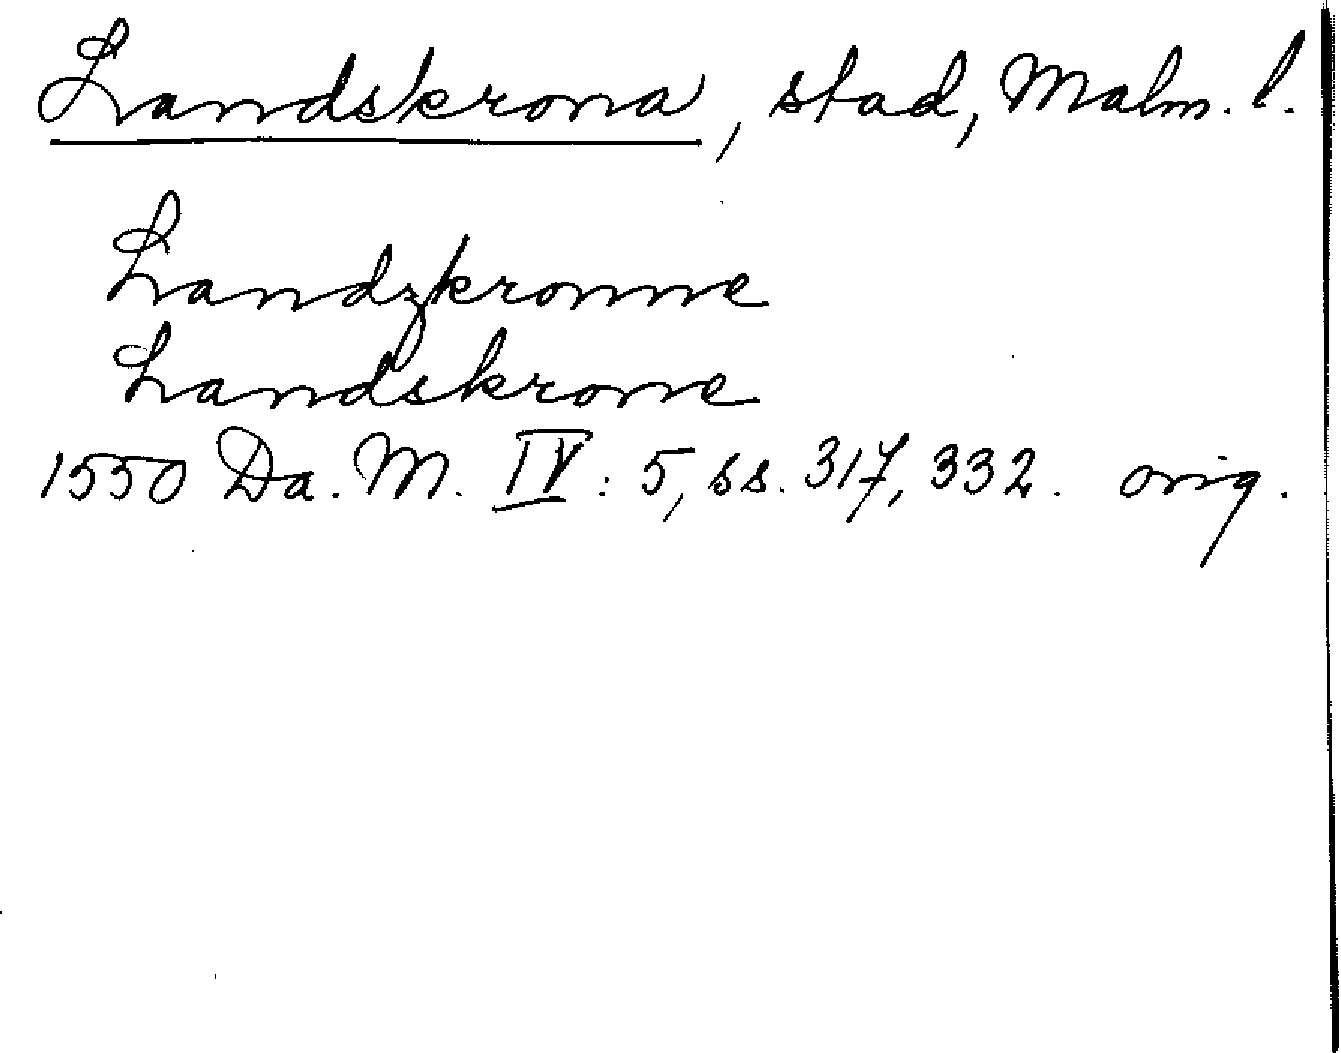 Landskrona, stad, Malm. l.
Landzkronne
Landskrone
1550 Da. M. IV: 5, ss. 317, 332. orig.